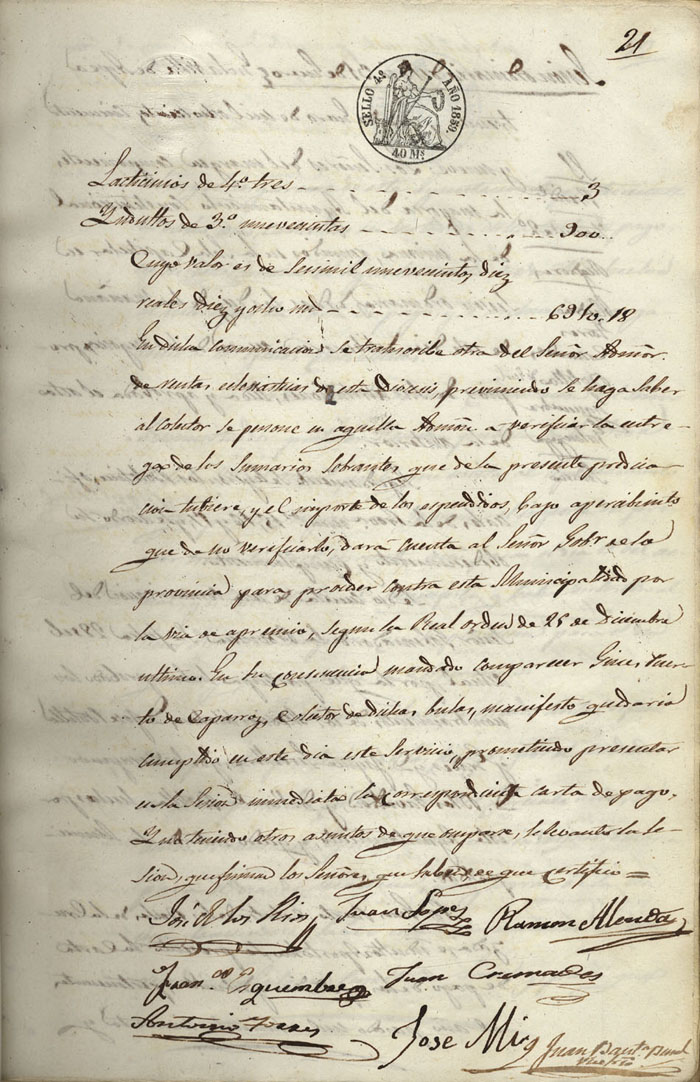 21
SELLO 4º AÑO 1859.
40 Ms
Lacticinios de 4ª tres 3
Yndultos de 3ª nuevecientas 900
Cuyo valor es de Seismil nuevecientos diez
reales diez y ocho md 6910.18
En dicha comunicacion se transcribe otra del Señor Admor.
de rentas eclesiasticas de esta Diocesis, previniendo se haga saber
al Colector se persone en aquella Admon. a verificar la entre-
ga de los Sumarios Sobrantes que de la presente predica-
cion tubiere, y el importe de los espendidos, bajo apercibimto
que de no verificarlo, dará cuenta al Señor Gobr de la
provincia para proceder contra esta Municipalidad por
la via de apremio, segun la Real orden de 25 de Diciembre
ultimo. En su consecuencia mandado comparecer Gines Puer-
to de Caparroz, Colector de dichas bulas, manifesto quedaria
cumplido en este dia este Servicio, prometiendo presentar
en la Sesion inmediata la correspondiente carta de pago.
Y no teniendo otros asuntos de que ocuparse, se levanto la se-
sion, que firman los Señores que saben, de que certifico =
José de los Rios Juan Lopez Ramon Alenda
Franco Esquembre Juan Cremades
Antonio Torres Jose Mira Juan Bauta